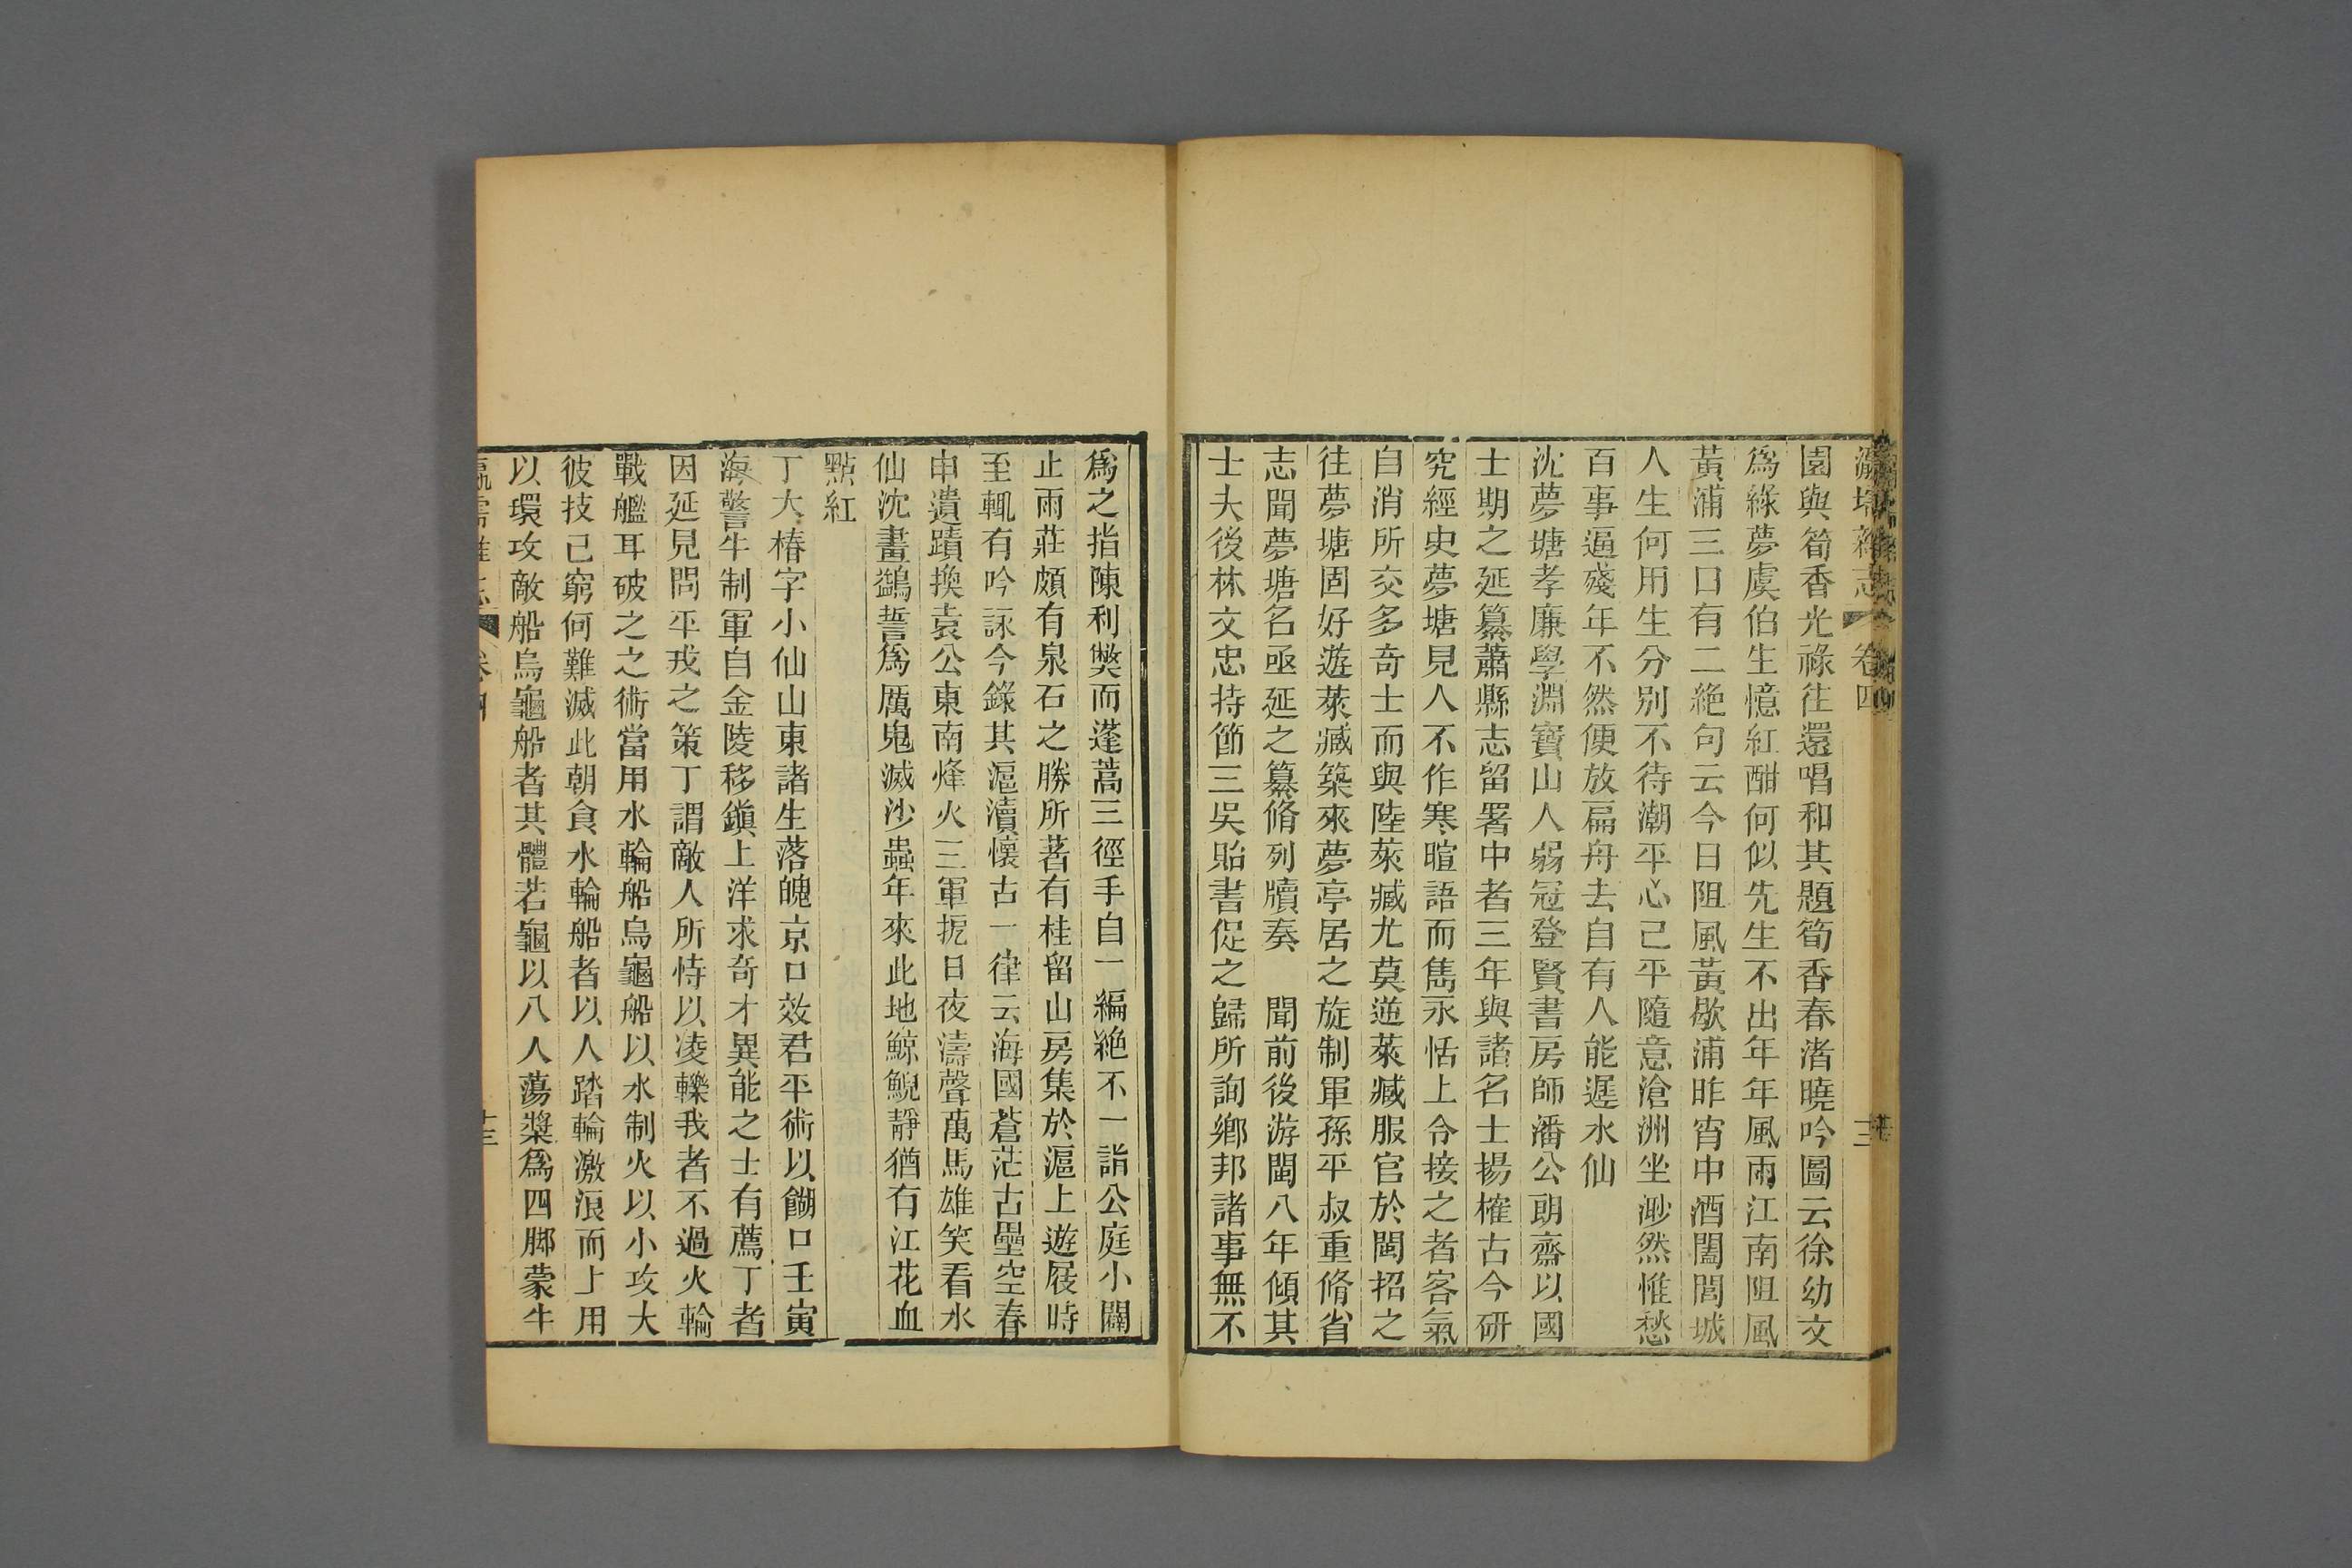 瀛壖雜志 卷四 三
園與筍香光祿往還唱和其題筍香春渚曉吟圖云徐幼文
爲綠夢虞伯生憶紅酣何似先生不出年年風雨江南阻風
黃浦三口有二絶句云今日阻風黃歇浦昨宵中酒闔閭城
人生何用生分別不待潮平心已平隨意滄洲坐渺然惟愁
百事逼殘年不然便放扁舟去自有人能遲水仙
沈夢塘孝廉學淵寶山人弱冠登賢書房師潘公朗齋以國
士期之延纂蕭縣志留署中者三年與諸名士揚搉古今研
究經史夢塘見人不作寒暄語而雋永恬上令接之者客氣
自消所交多奇士而與陸萊臧尤莫逆萊臧服官於閩招之
往夢塘固好遊萊臧築來夢亭居之旋制軍孫平叔重脩省
志聞夢塘名亟延之纂脩列牘奏 聞前後游閩八年傾其
士大夫後林文忠持節三吳貽書促之歸所詢鄉邦諸事無不
爲之指陳利獘而蓬蒿三徑手自一編絶不一詣公庭小闢
止雨莊頗有泉石之勝所著有桂留山房集於滬上遊屐時
至輒有吟詠今錄其滬瀆懷古一律云海國蒼茫古壘空春
申遺蹟換袁公東南烽火三軍扼日夜濤聲萬馬雄笑看水
仙沈畫鷁誓爲厲鬼滅沙蟲年來此地鯨鯢靜猶有江花血
點紅
丁大椿字小仙山東諸生落魄京口效君平術以餬口壬寅
海警牛制軍自金陵移鎭上洋求奇才異能之士有薦丁者
因延見問平戎之策丁謂敵人所恃以凌轢我者不過火輪
戰艦耳破之之術當用水輪船烏龜船以水制火以小攻大
彼技已窮何難滅此朝食水輪船者以人踏輪激浪而上用
以環攻敵船烏龜船者其體若龜以八人蕩槳爲四脚蒙牛
瀛壖雜志 卷四 十三